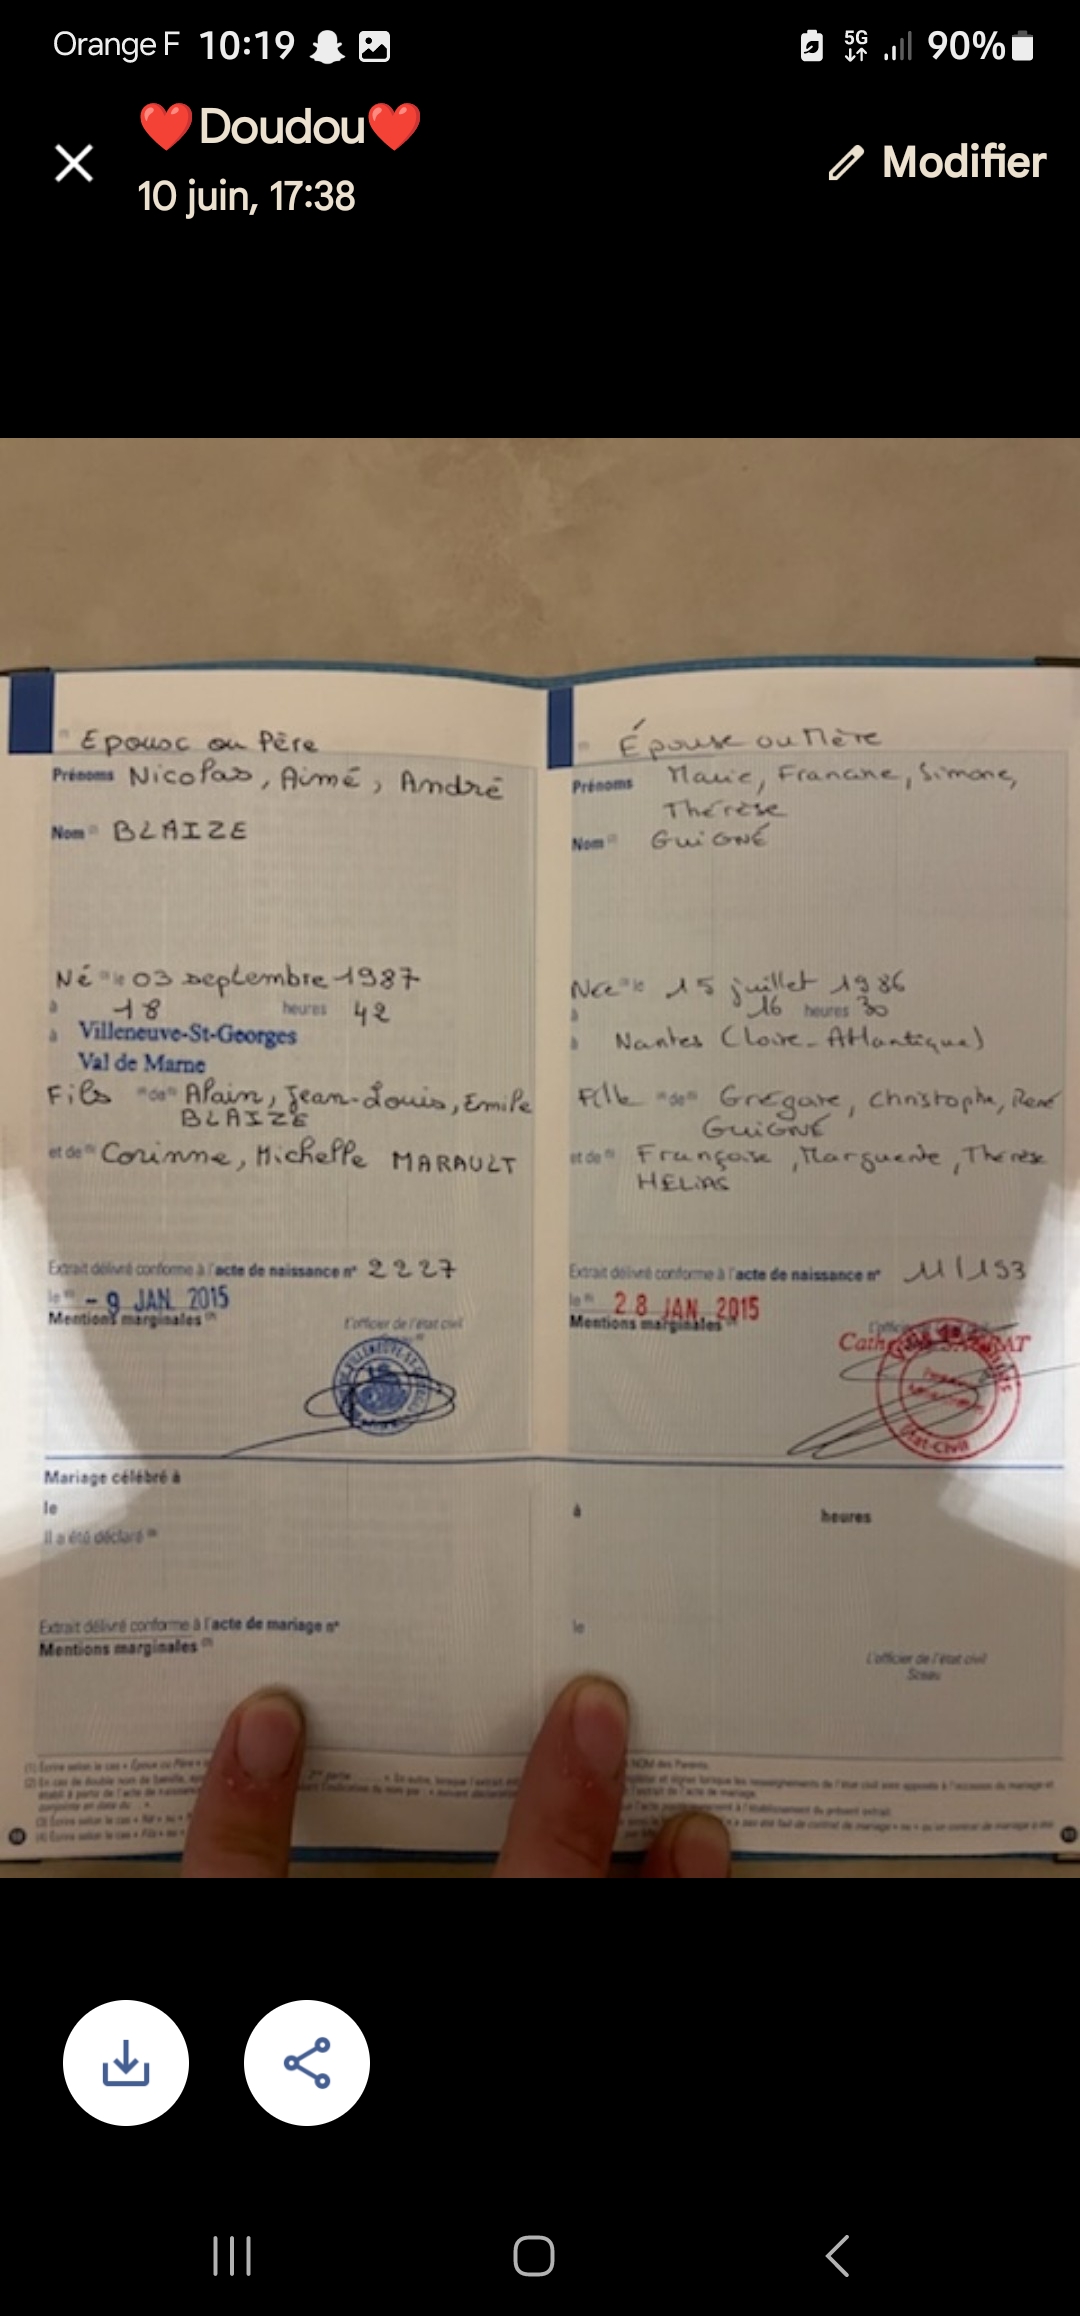 Orange F 10:19 5G 90%
❤️Doudou❤️
10 juin, 17:38
Modifier
Epouse ou Père
Prénoms Nicolas, Aimé, André
Nom BLAIZE
Né le 03 septembre 1987
à 18 heures 42
à Villeneuve-St-Georges
Val de Marne
Fils de Alain, Jean-Louis, Emile
BLAIZE
et de Corinne, Michelle MARAULT
Extrait délivré conforme à l'acte de naissance n° 2227
le - 9 JAN. 2015
Mentions marginales
L'officier de l'état civil
Épouse ou Mère
Prénoms Marie, Francine, Simone,
Thérèse
Nom GUIGNÉ
Née le 15 juillet 1986
à 16 heures 30
à Nantes (Loire-Atlantique)
Fille de Grégoire, Christophe, René
GUIGNÉ
et de Françoise, Marguerite, Thérèse
HELIAS
Extrait délivré conforme à l'acte de naissance n° 11/153
le 28 JAN. 2015
Mentions marginales
L'officier de l'état civil
État-Civil
Mariage célébré à
le à heures
Il a été déclaré
Extrait délivré conforme à l'acte de mariage n° le
Mentions marginales
L'officier de l'état civil
Sceau